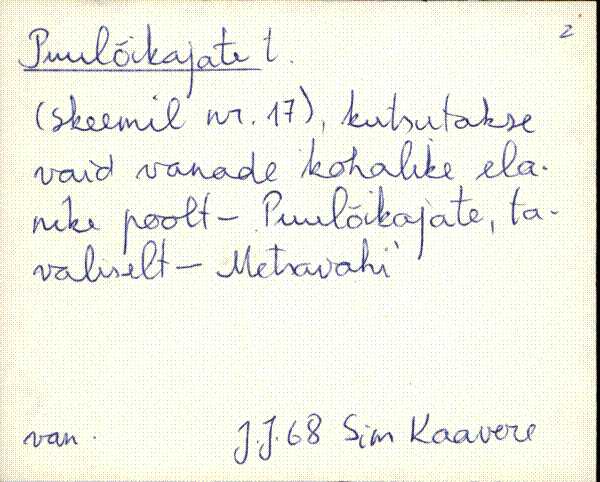 2
Puulõikajate t.
(skeemil nr. 17), kutsutakse
vaid vanade kohalike ela-
nike poolt - Puulõikajate, ta-
valiselt - Metsavahi
van.
J.J. 68 Sim Kaavere